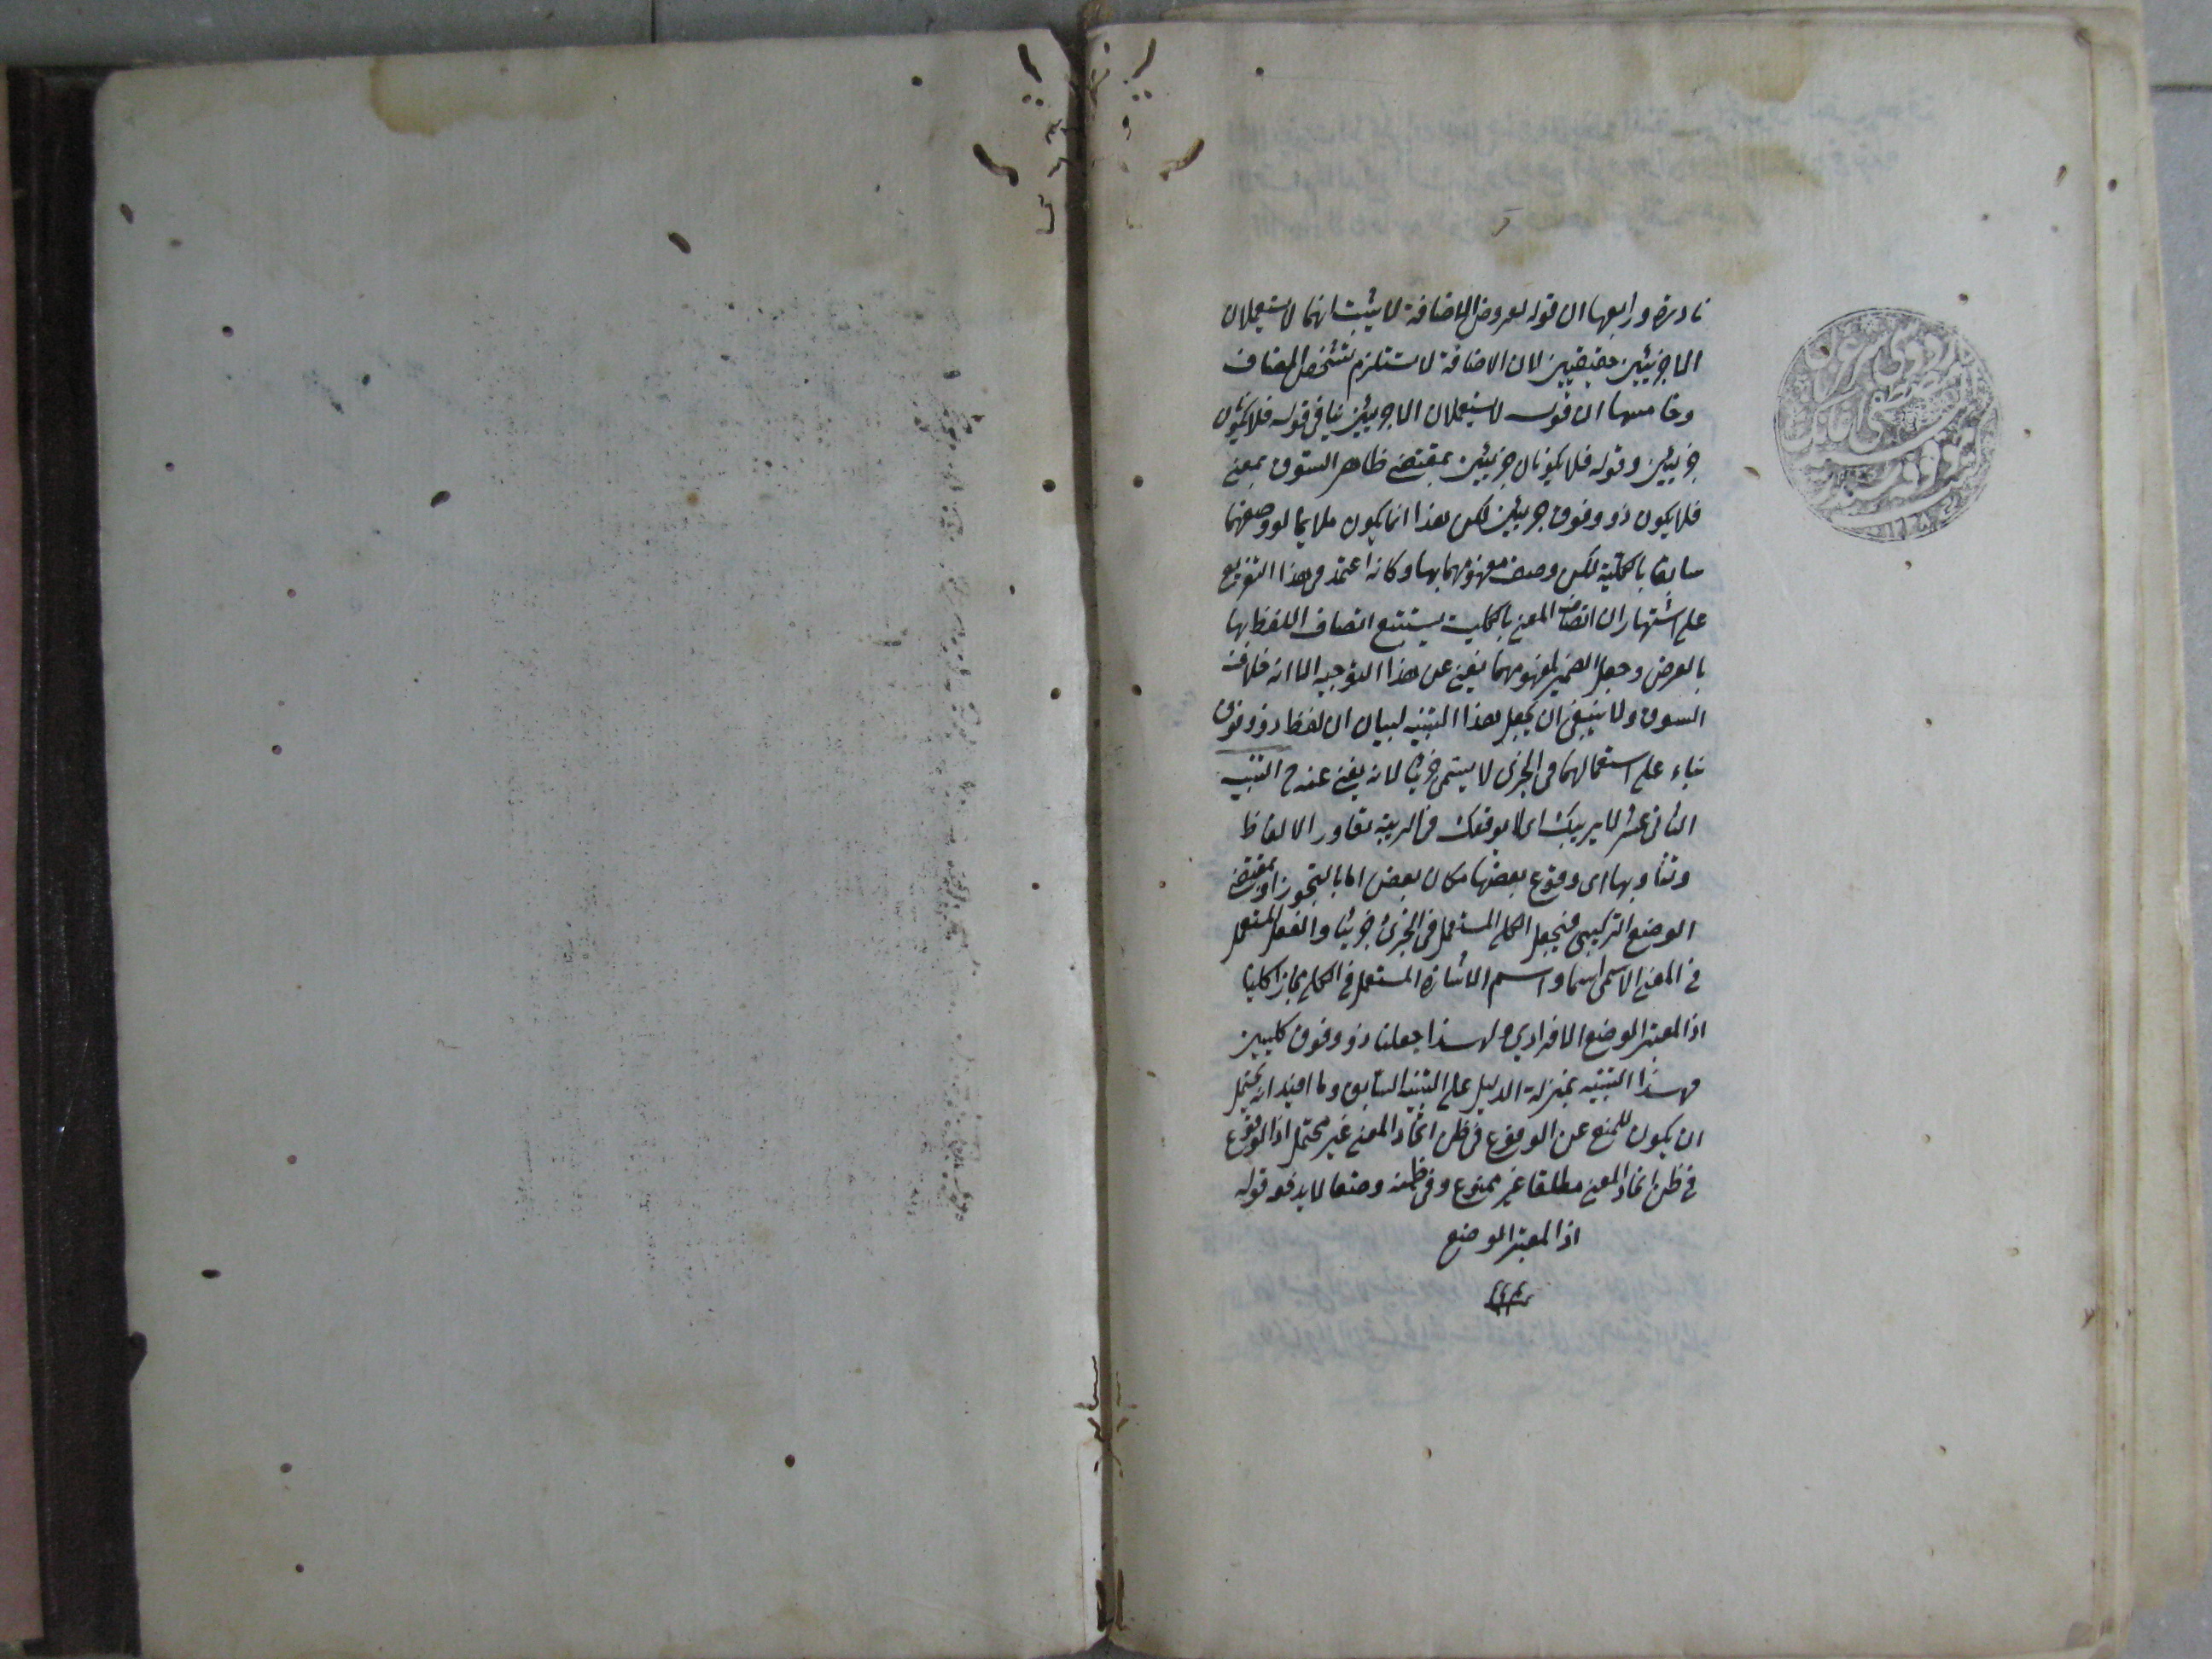 نادرة ورابعها ان قوله لعروض الاضافة لا يثبت انهما لا يستعملان
الا جزئيين حقيقيين لان الاضافة لا تستلزم تشخص المضاف
وخامسها ان قوله لا يستعملان الا جزئيين ينافى قوله فلا يكونان
جزئيين وقوله فلا يكونان جزئيين بمقتضى ظاهر السوق بمعنى
فلا يكون ذو وفوق جزئيين لكن هذا انما يكون ملايما لو وصفهما
سابقا بالكلية لكن وصف مفهومهما بها وكانه اعتمد فى هذا التفريع
على اشتهار ان اتصاف المعنى بالكلية يستتبع اتصاف اللفظ بها
بالعرض وجعل الضمير لمفهومهما يغنى عن هذا التوجيه الا انه خلاف
السوق ولا ينبغى ان يجعل هذا التنبيه لبيان ان لفظ ذو وفوق
بناء على استعمالهما فى الجزئى لا يسمى جزئيا لانه يغنى عنه ح التنبيه
الثانى عشر لا يريبك اى لا يوقفك فى الريبة تعاور الالفاظ
وتناوبها اى وقوع بعضها مكان بعض اما بالتجوز او بمقتضى
الوضع التركيبى فيجعل الكلى المستعمل فى الجزئى جزئيا والفعل المستعمل
فى المعنى الاسمى اسما واسم الاشارة المستعمل فى الكلى مجازا كليا
اذ المعتبر الوضع الافرادى ولهذا جعلنا ذو وفوق كليين
فهذا التنبيه بمنزلة الدليل على التنبيه السابق وما افيد انه يحتمل
ان يكون للمنع عن الوقوع فى ظن اتحاد المعنى غير محتمل اذ الوقوع
فى ظن اتحاد المعنى مطلقا غير ممنوع وفى ظنه وضعا لا يدفعه قوله
اذ المعتبر الوضع